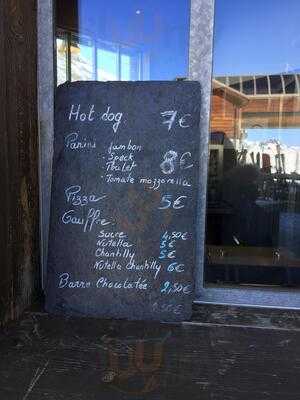 Hot dog 7€
Panini Jambon
Speck 8€
Poulet
Tomate mozzarella
Pizza 5€
Gauffre
Sucre 4,50€
Nutella 5€
Chantilly 5€
Nutella Chantilly 6€
Barre Chocolatée 2,50€